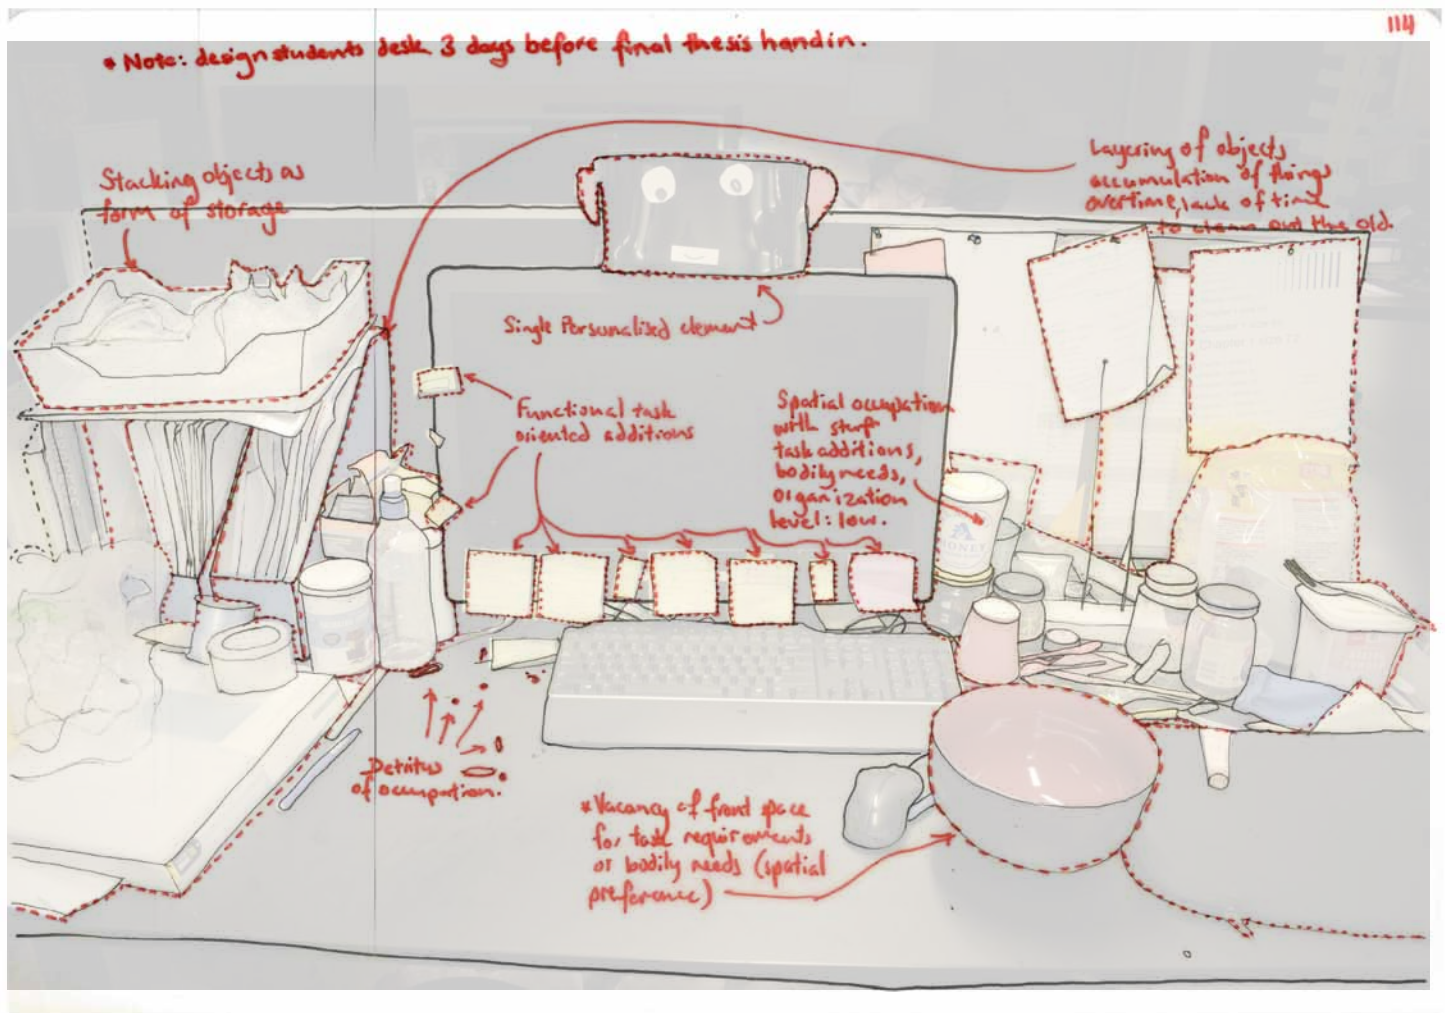 114
* Note: design students desk 3 days before final thesis handin.
Stacking objects as
form of storage
Layering of objects
accumulation of things
overtime, lack of time
to clean out the old.
Single Personalised element
Functional task
oriented additions
Spatial occupation
with stuff
task additions,
bodily needs,
organization
level: low.
HONEY
Detritus
of occupation.
* Vacancy of front space
for task requirements
or bodily needs (spatial
preference)